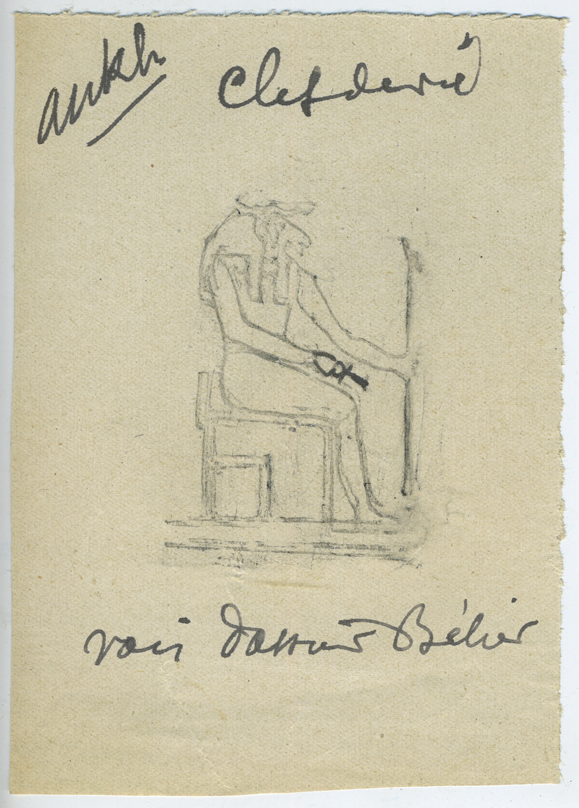 ankh
Clef de vie
voir dossier Bélier